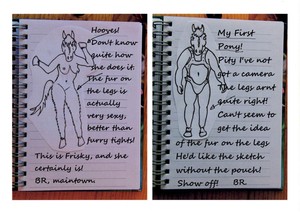 Hooves!
Don't know
quite how
she does it.
The fur on
the legs is
actually
very sexy,
better than
furry tights!
This is Frisky, and she
certainly is!
BR, maintown.
My First
Pony!
Pity I've not
got a camera
The legs arnt
quite right!
Can't seem to
get the idea
of the fur on the legs
He'd like the sketch
without the pouch!
Show off! BR